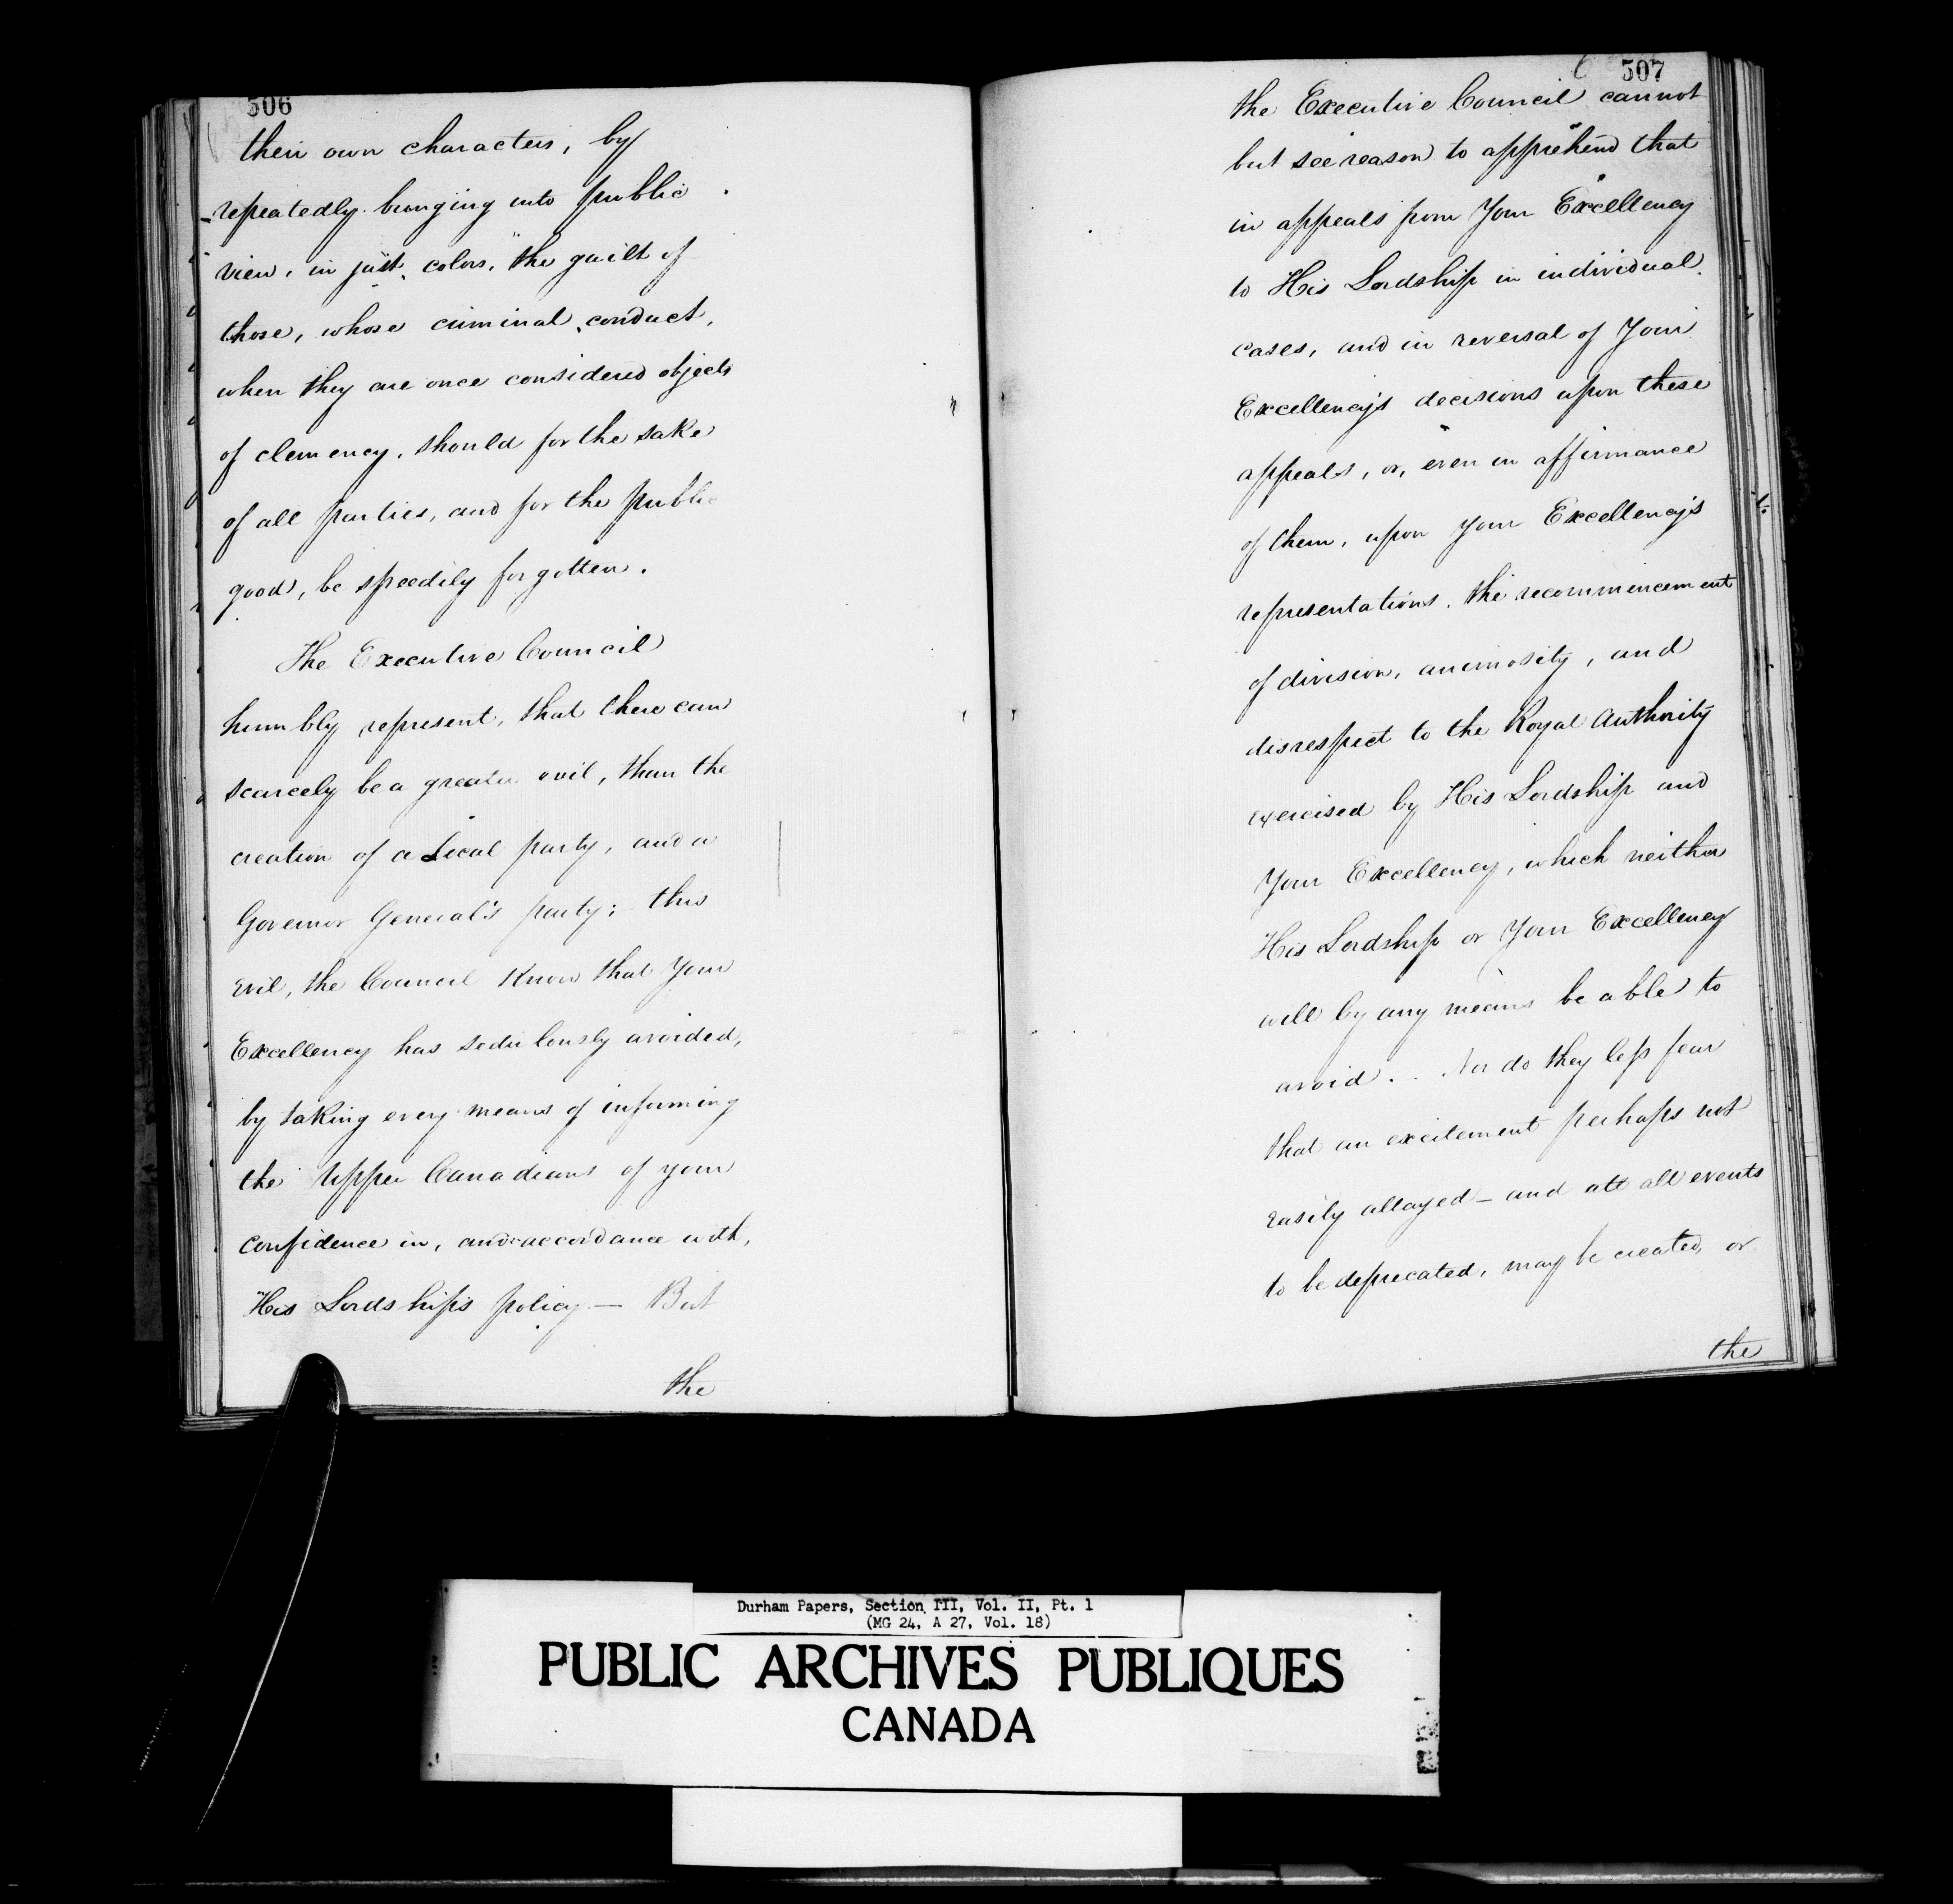 506
their own characters, by
repeatedly bringing into public
view, in just colors, the guilt of
those, whose criminal conduct,
when they are once considered objects
of clemency, should for the sake
of all parties, and for the public
good, be speedily forgotten.
The Executive Council
humbly represent, that there can
scarcely be a greater evil, than the
creation of a local party, and a
Governor General's party; – this
evil, the Council know that Your
Excellency has sedulously avoided,
by taking every means of informing
the Upper Canadians of your
confidence in, and accordance with,
His Lordship's policy – But
the
6 507
the Executive Council cannot
but see reason to apprehend that
in appeals from Your Excellency
to His Lordship in individual
cases, and in reversal of Your
Excellency's decisions upon these
appeals, or, even in affirmance
of them, upon Your Excellency's
representations, the recommencement
of division, animosity, and
disrespect to the Royal Authority
exercised by His Lordship and
Your Excellency, which neither
His Lordship or Your Excellency
will by any means be able to
avoid. . Nor do they less fear
that an excitement perhaps not
easily allayed – and att all events
to be deprecated, may be created, or
the
Durham Papers, Section III, Vol. II, Pt. 1
(MG 24, A 27, Vol. 18)
PUBLIC ARCHIVES PUBLIQUES
CANADA